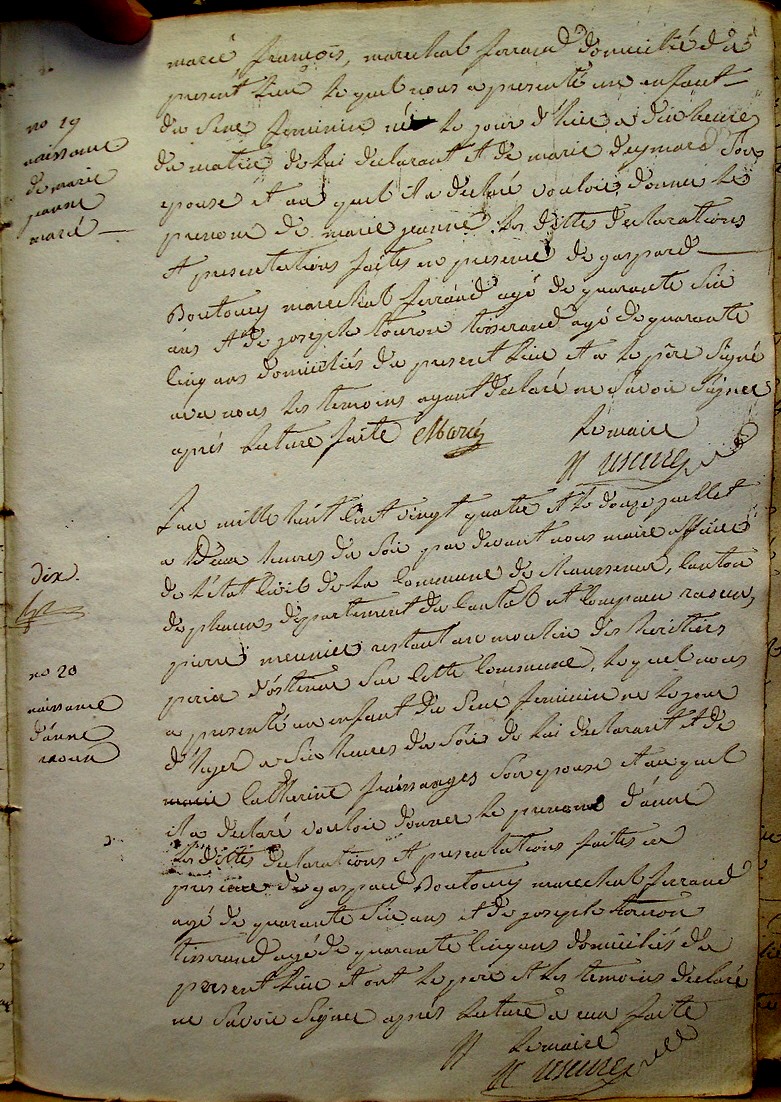 marcé françois, marechal ferrand domicilié du
present lieu lequel nous a presenté un enfant
du sexe feminin né le jour d'hier a dix heures
du matin de lui declarant et de marie deymard son
epouse et au quel il a declaré vouloir donner le
prenom de marie jeanne. les dittes declarations
et presentations faites en presence de gaspard
Boutoury marechal ferrand agé de quarante six
ans et de joseph touron tisserand agé de quarante
cinq ans domiciliés du present lieu et a le père signé
avec nous les temoins ayant declaré ne savoir signer
après lecture faite Marcé le maire
no 19
naissance
de marie
jeanne
marcé
L'an mille huit cent vingt quatre et le douze juillet
a deux heures du soir par devant nous maire officier
de l'état civil de la commune de
canton
de pleaux département du Cantal est comparu
pierre meunier restant au moulin des heritiers
sur cette commune, lequel nous
a presenté un enfant du sexe feminin né le jour
d'hyer a six heures du soir de lui declarant et de
marie Catherine fraissanges son epouse et au quel
il a declaré vouloir donner le prenom d'anne
les dittes declarations et presentations faites en
presence de gaspard Boutoury marechal ferrand
agé de quarante six ans et de joseph touron
tisserand agé de quarante cinq ans domiciliés du
present lieu et ont le père et les temoins declaré
ne savoir signer après lecture a eux faite
le maire
dix.
no 20
naissance
d'anne